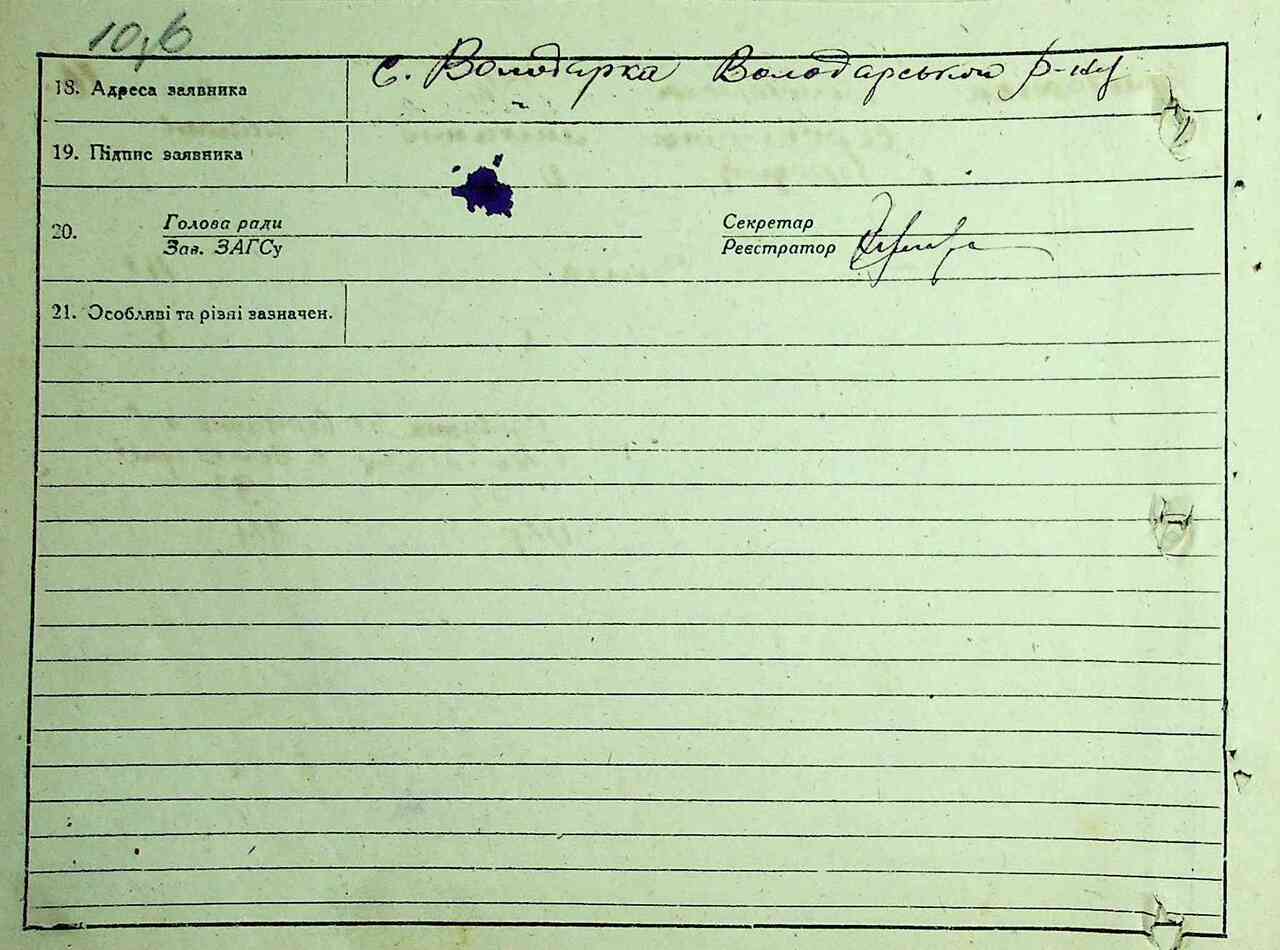 10,6
18. Адреса заявника
с. Володарка Володарської р-ну
19. Підпис заявника
20.
Голова ради
Зав. ЗАГСу
Секретар
Реєстратор
21. Особливі та різні зазначен.